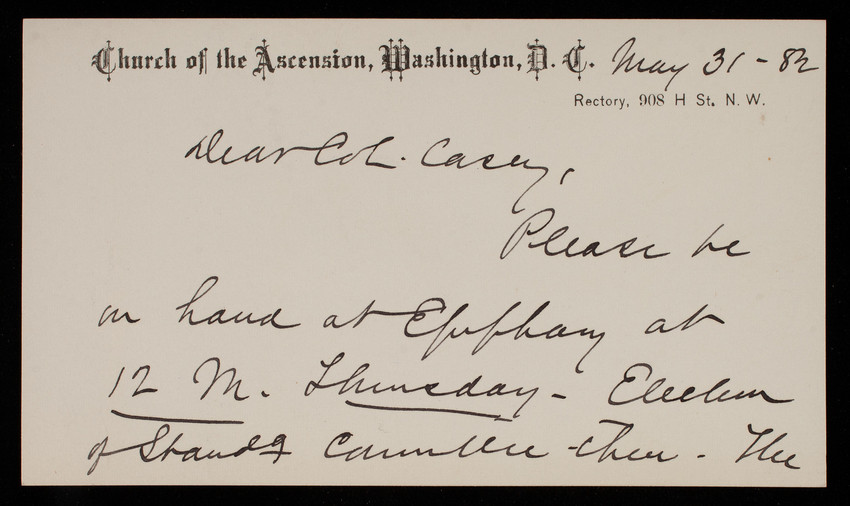 Church of the Ascension, Washington, D. C. May 31 - 82
Rectory, 908 H St. N. W.
Dear Col. Casey,
Please be
on hand at Epiphany at
12 M. Thursday - Election
of Standg Committee then. The